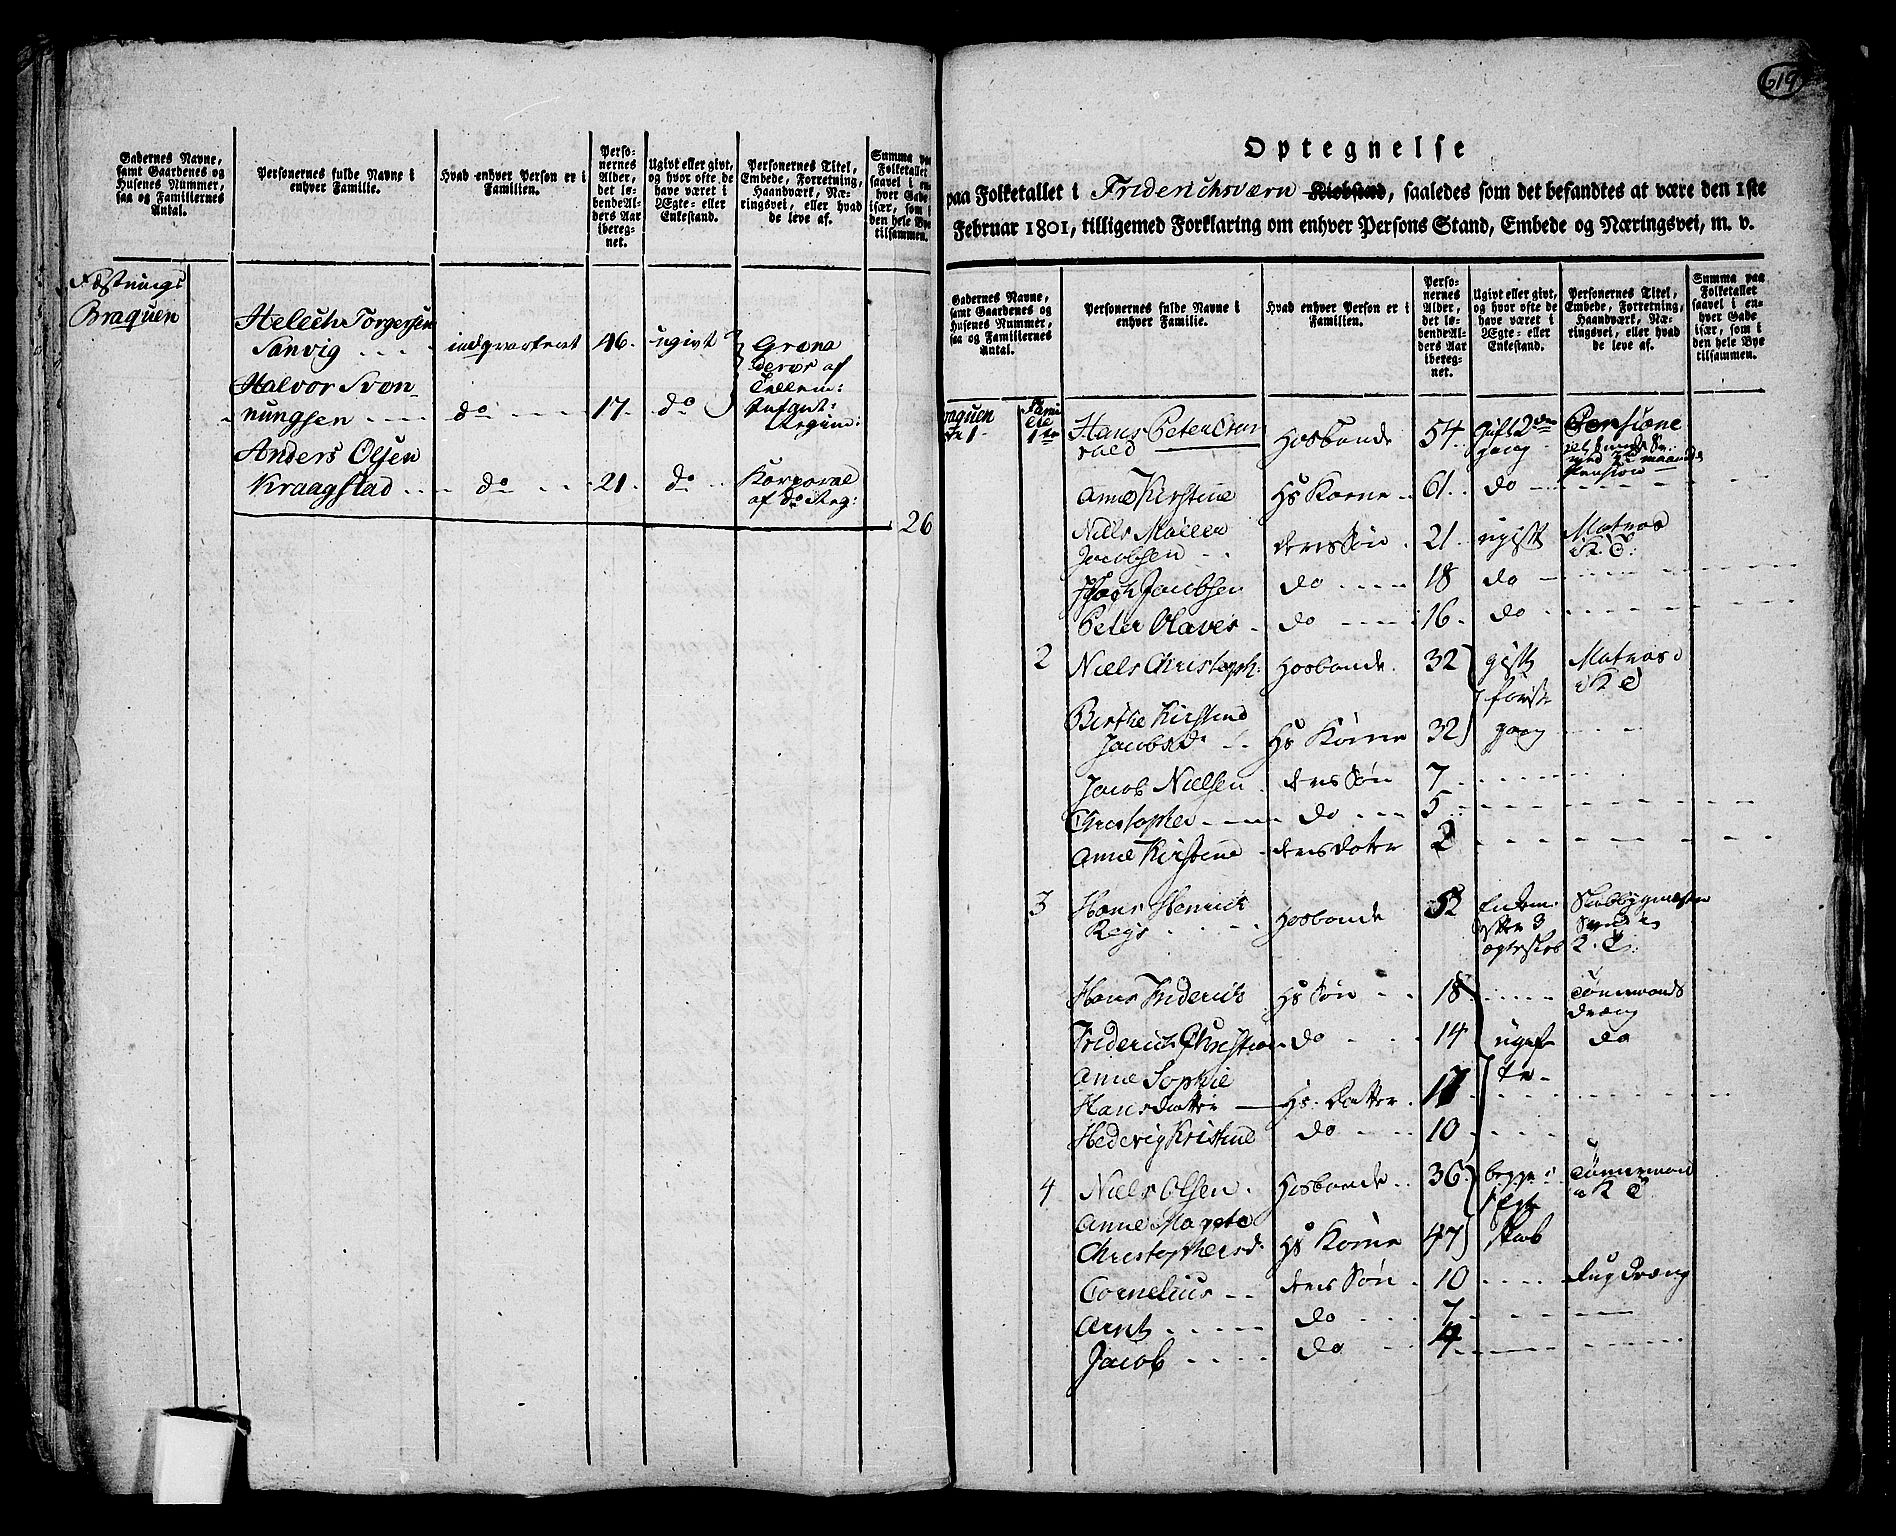 Gadernes Navne,
samt Gaardenes og
Husenes Nummer,
saa og Familiernes
Antal.
Personernes fulde Navne i
enhver Familie.
Hvad enhver Person er i
Familien.
Perso-
nernes
Alder,
det lø-
bende Al-
ders Aar
iberegnet.
Ugivt eller givt,
og hvor ofte de
have været i
Ægte- eller
Enkestand.
Personernes Titel,
Embede, Forretning,
Haandværk, Næ-
ringsvei, eller hvad
de leve af.
Summa paa
Folketallet
saavel i en-
hver Gade
især, som i
den hele Bye
tilsammen.
Fæstnings
Braquen
Helech Torgersen
Sanvig .... indqvarteret 46. ugivt Grena
derer af
Tellem:
Infant:
Regim:
Halvor Svon-
nungsen .... do .... 17. do
Anders Olsen
Kraagstad ... do ... 21. do .. Korporal
af do Reg:
26
619
Optegnelse
paa Folketallet i Friderichsværn Kiøbsted, saaledes som det befandtes at være den 1ste
Februar 1801, tilligemed Forklaring om enhver Persons Stand, Embede og Næringsvei, m. v.
Gadernes Navne,
samt Gaardenes og
Husenes Nummer,
saa og Familiernes
Antal.
Personernes fulde Navne i
enhver Familie.
Hvad enhver Person er i
Familien.
Perso-
nernes
Alder,
det lø-
bende Al-
ders Aar
ibereg-
net.
Ugivt eller givt,
og hvor ofte de
have været i
Ægte- eller
Enkestand.
Personernes Titel,
Embede, Forretning,
Haandværk, Næ-
ringsvei, eller hvad
de leve af.
Summa paa
Folketallet
saavel i en-
hver Gade
især, som i
den hele Bye
tilsammen.
Hans Peter
Hosbonde 54 Gift 2den
gang
Pension
Anne Kirstine Hs Kone .. 61 .. do
Niels Møller
Jacobsen .. deres Søn . 21. ugift Matros
Jacobsen do .... 18 do
Peter Olaves . do .... 16. do
2 Niels Christoph. Hosbonde. 32 gift Matros i
første K T
Berthe Kirstine
Jacobsd .. Hs Kone 32 gang
Jacob Nielsen . deres Søn 7
Christopher .... do ... 5
Anne Kirstine . deres Dotter 2
3 Hans Henrich
Hosbonde 52 Enkem:
efter 3
ægteskab
Skibbygmester
Svend
K. T.
Hans Friderich Hs Søn .. 18 .... Tømermands
dreng
Friderich Christian do ... 14 ugif- do
te-
Anne Sophie
Hansdatter Hs. Datter . 17
Hedevig Kristine do ... 10
4 Niels Olsen . Hosbonde .. 36 begge i Tømermand
i K T
Ægte
Anne
Christophersd. Hs Kone 47 skab
Cornelius .. deres Søn . 10 .... dreng
Arnt ..... do ... 7
Jacob .... do ... 4